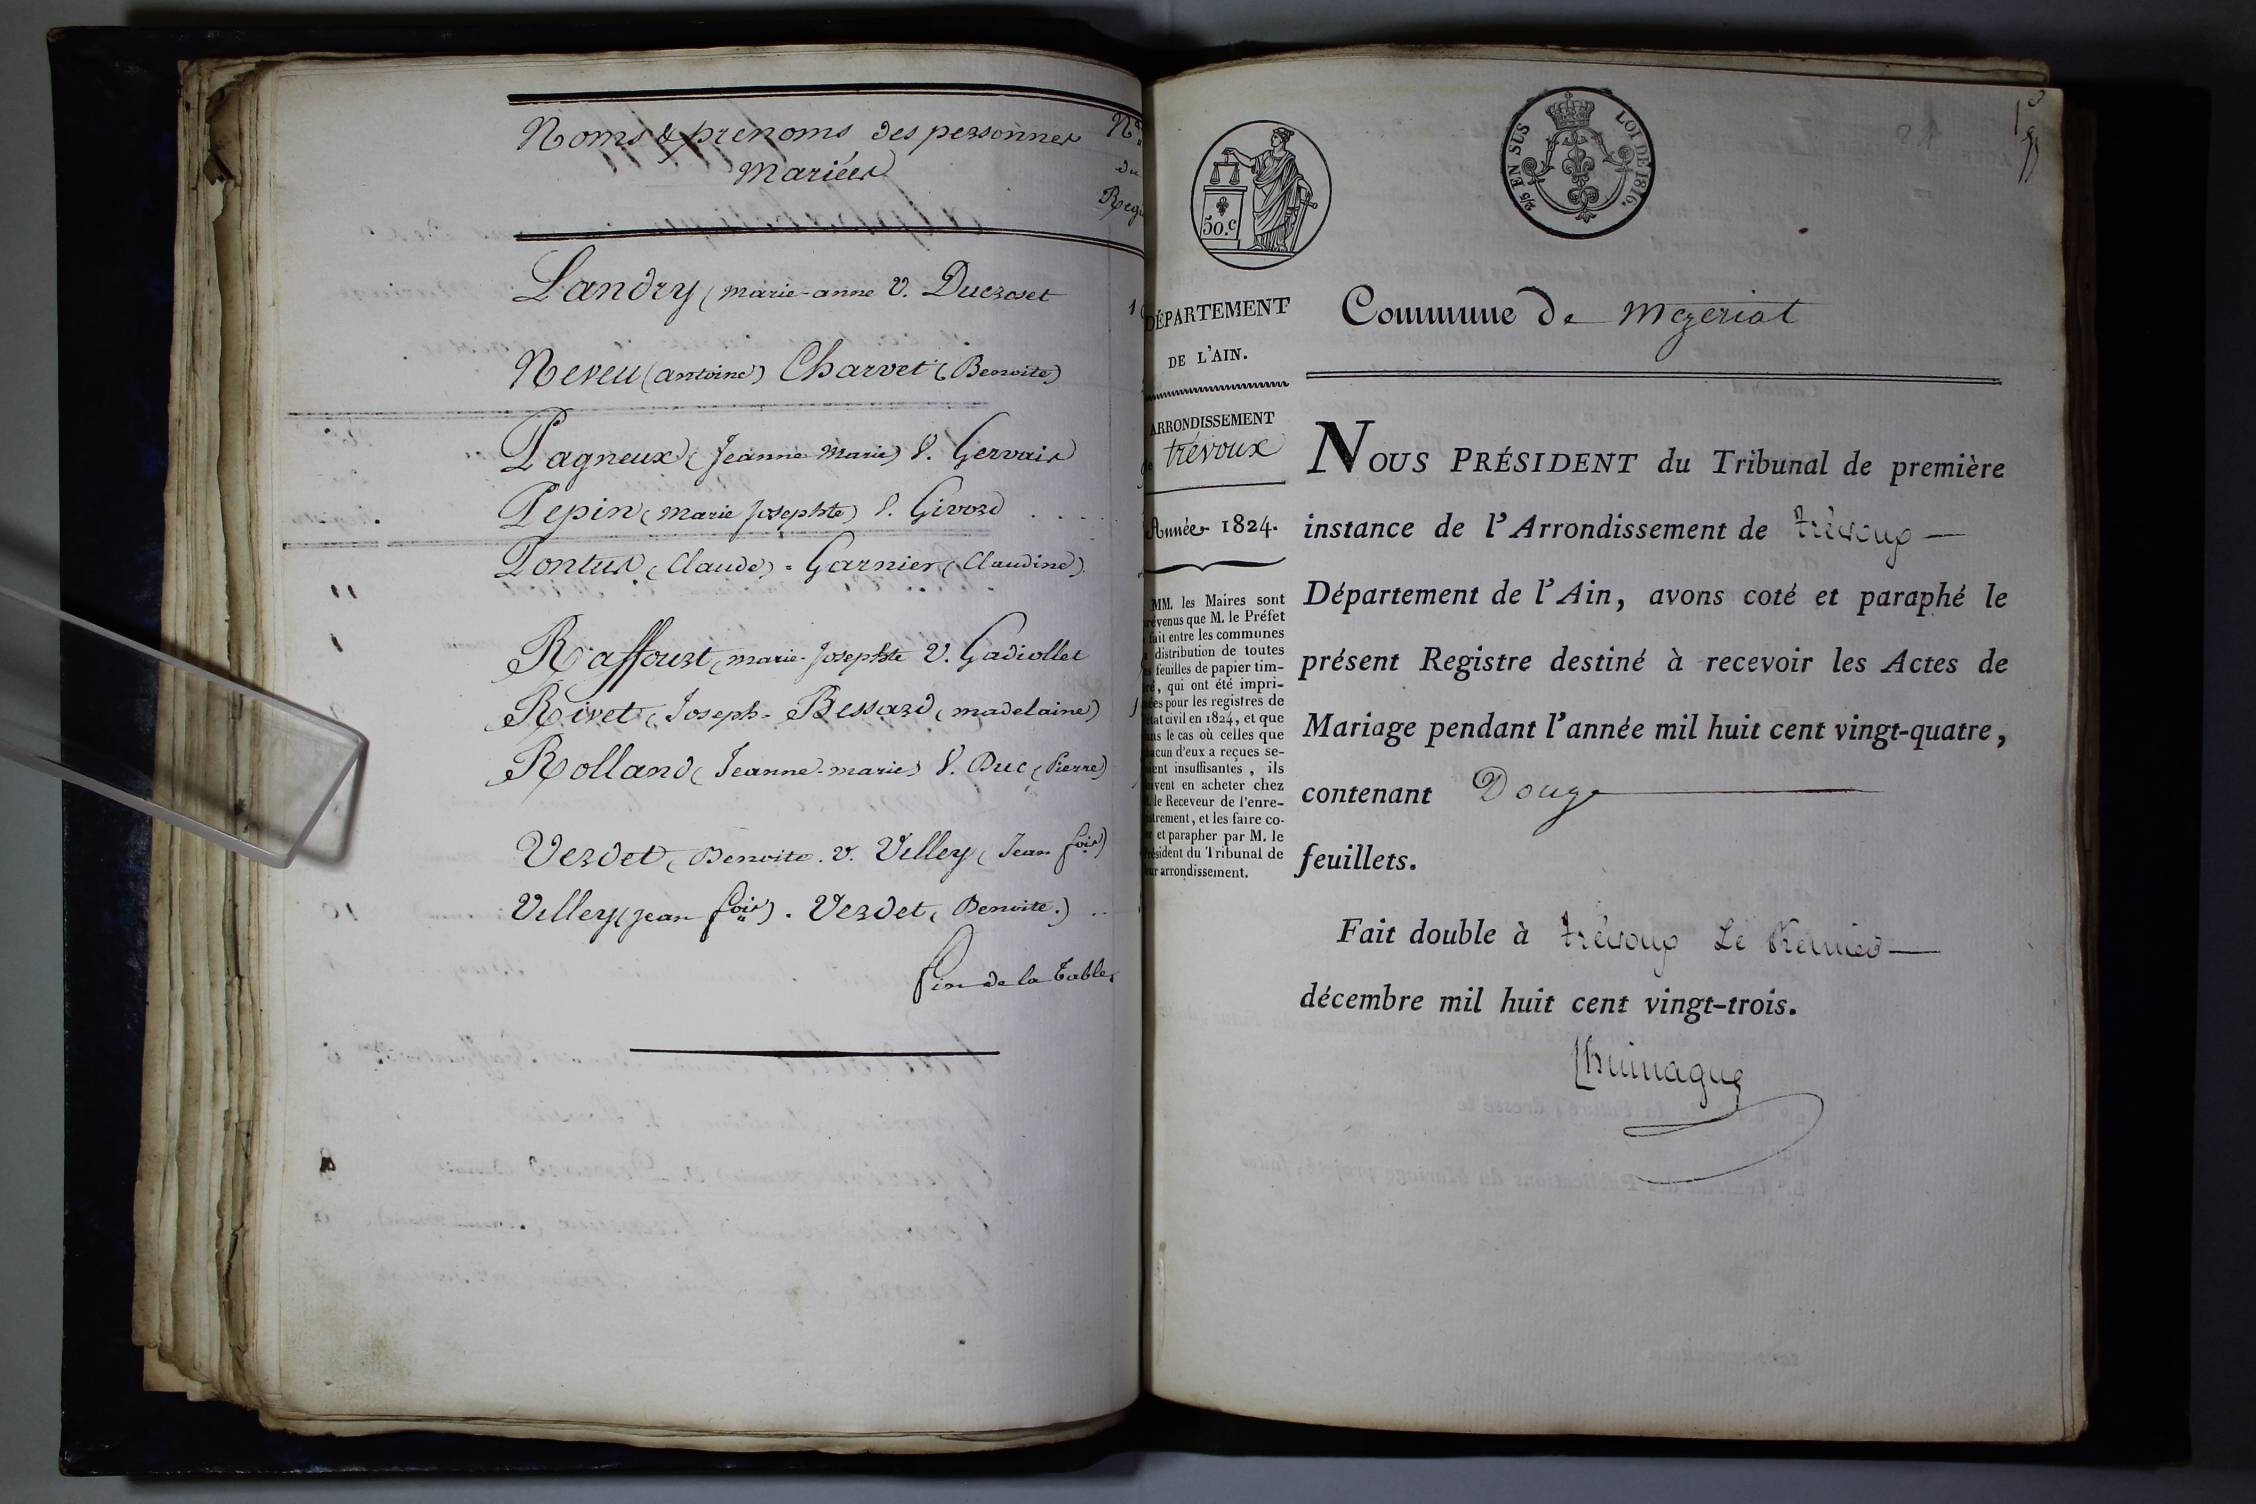 Noms & prenoms des personnes
Mariées
du
Landry (marie-anne V. Ducroset
Neveu (antoine) Charvet (Benoite)
Pagneux (Jeanne Marie) V. Gervais
Pepin (marie Josephte) V. Givord
Pontus (Claude) = Garnier (Claudine)
Raffourt, marie-Josephte V. Gadiollet
Rivet (Joseph - Bessard (madelaine)
Rolland (Jeanne-marie) V. Duc (Pierre)
Verdet (Benoite. V. Villey (Jean fois)
Villey (jean fois). Verdet (Benoite.)
fin de la table
50.c
2/5 EN SUS
LOI DE 1816.
DÉPARTEMENT
DE L'AIN.
ARRONDISSEMENT
trévoux
Année 1824.
MM. les Maires sont
prévenus que M. le Préfet
fait entre les communes
distribution de toutes
feuilles de papier tim-
bré, qui ont été impri-
mées pour les registres de
l'état civil en 1824, et que
dans le cas où celles que
chacun d'eux a reçues se-
raient insuffisantes, ils
peuvent en acheter chez
M. le Receveur de l'enre-
gistrement, et les faire co-
ter et parapher par M. le
Président du Tribunal de
leur arrondissement.
Commune de Mezeriat
NOUS PRÉSIDENT du Tribunal de première
instance de l'Arrondissement de trévoux
Département de l'Ain, avons coté et paraphé le
présent Registre destiné à recevoir les Actes de
Mariage pendant l'année mil huit cent vingt-quatre,
contenant Douze
feuillets.
Fait double à trévoux Le premier
décembre mil huit cent vingt-trois.